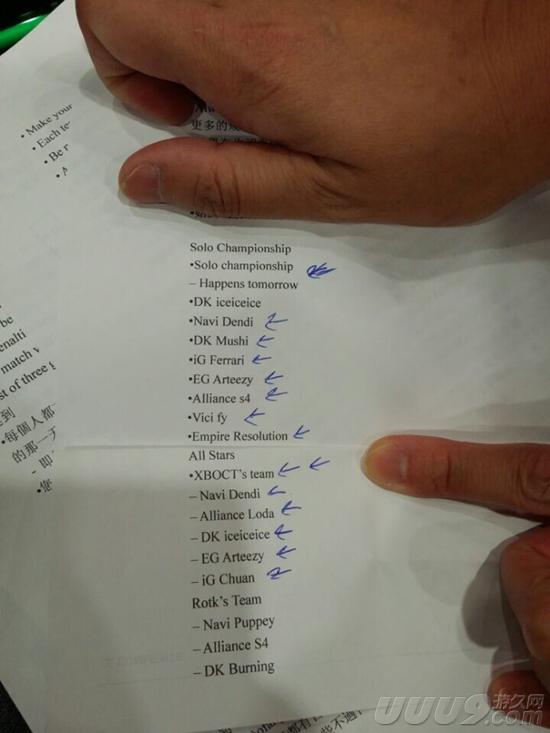 • Make your
• Each te
• Be r
更多的
Solo Championship
•Solo championship
– Happens tomorrow
•DK iceiceice
•Navi Dendi
•DK Mushi
•iG Ferrari
•EG Arteezy
•Alliance s4
•Vici fy
•Empire Resolution
All Stars
•XBOCT's team
– Navi Dendi
– Alliance Loda
– DK iceiceice
– EG Arteezy
– iG Chuan
Rotk's Team
– Navi Puppey
– Alliance S4
– DK Burning
be
enalti
match v
st of three g
到
•每個人都
的那一天
– 即
•您
UUU9 游久网